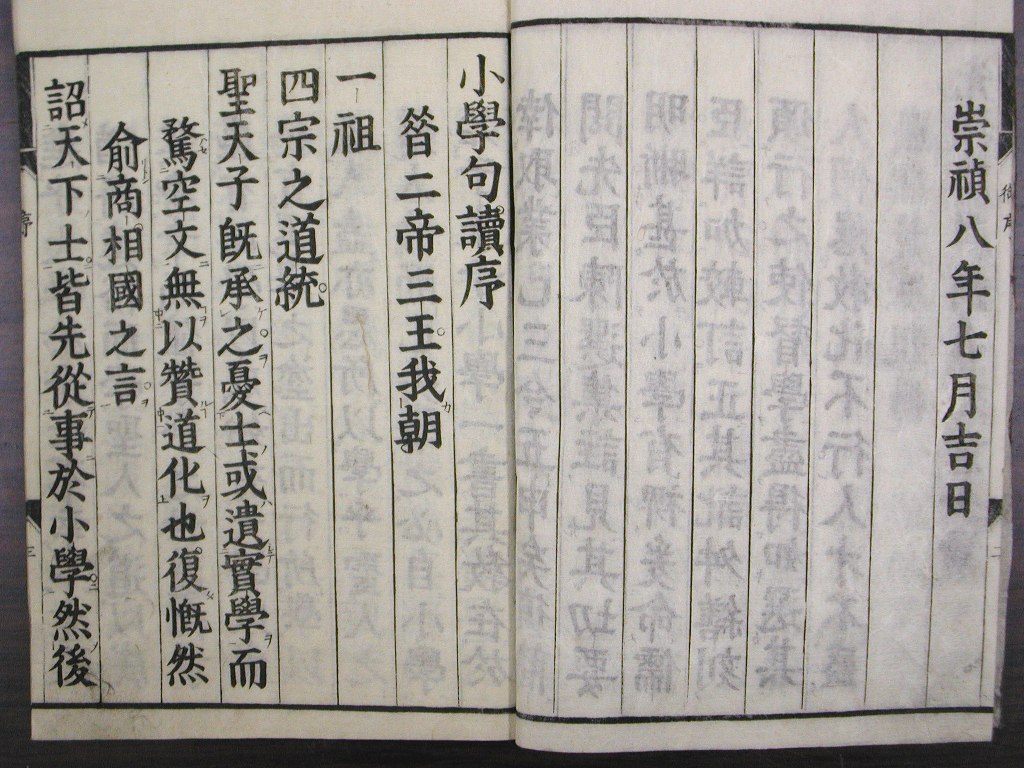 崇禎八年七月吉日
小學句讀序
昝二帝三王我朝
一祖
四宗之道統
聖天子既承之憂士或遺實學而
騖空文無以贊道化也復慨然
俞商相國之言
詔天下士皆先從事於小學然後